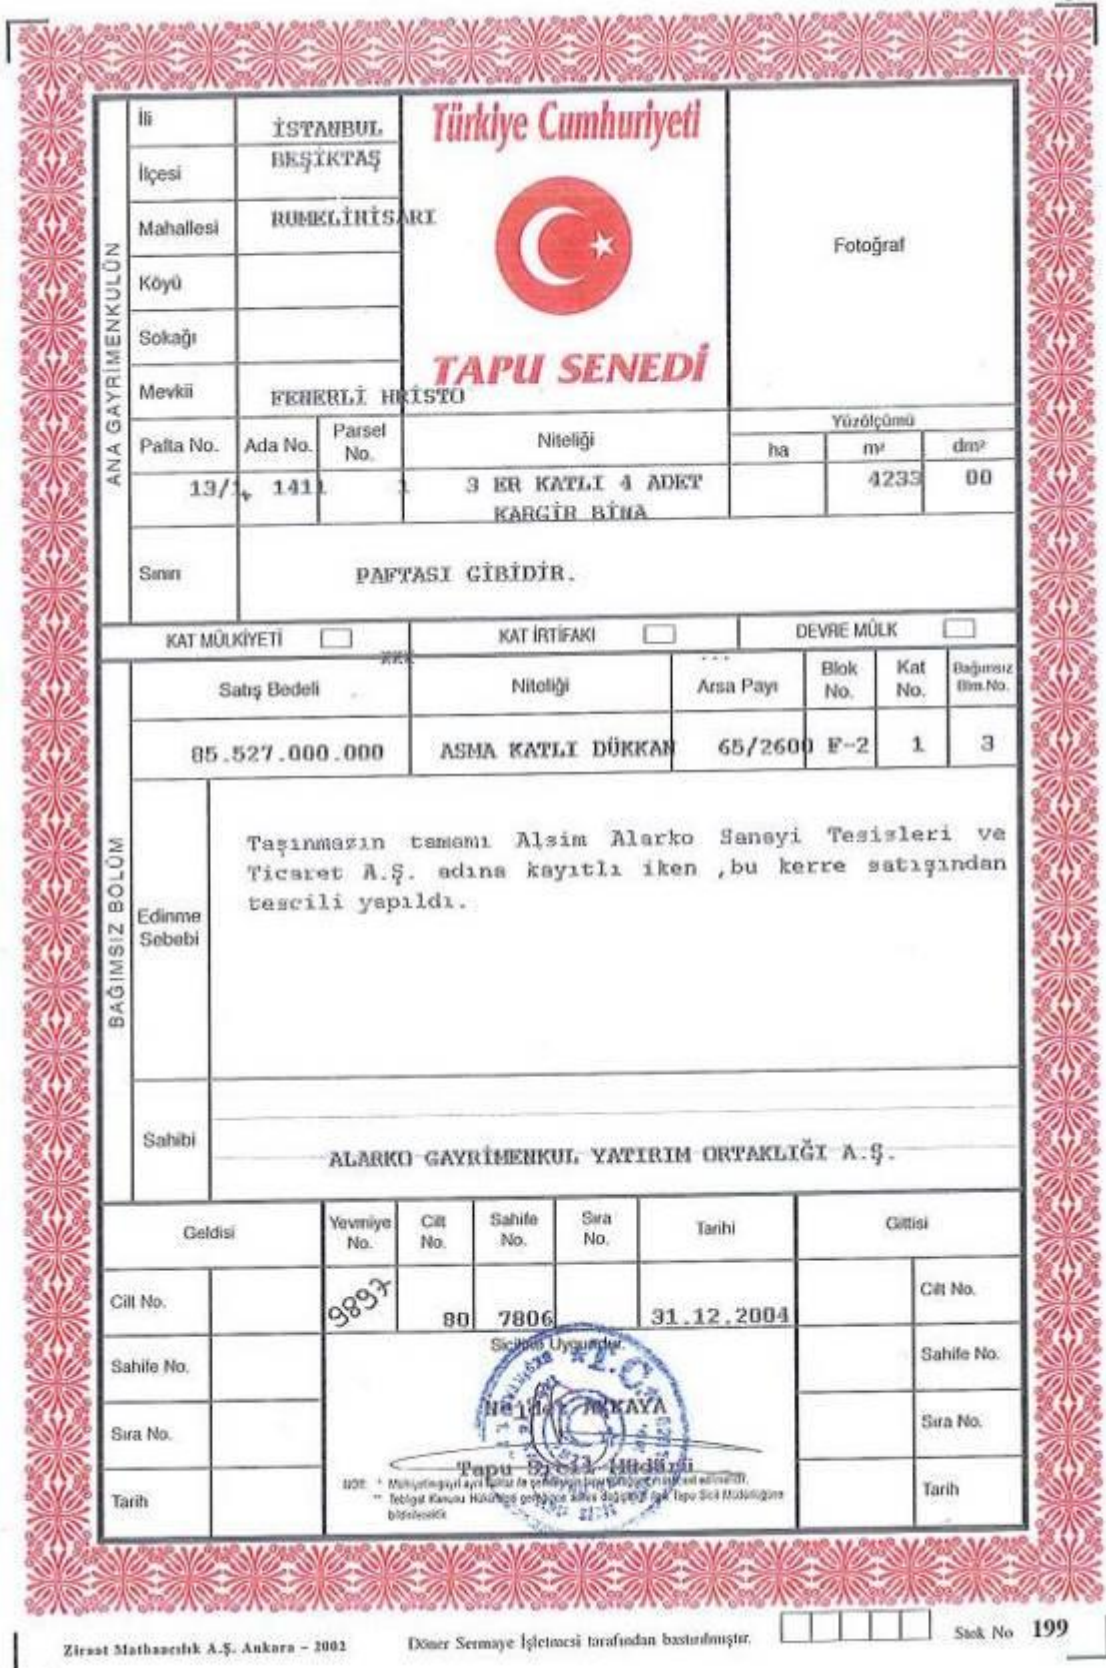 Türkiye Cumhuriyeti
TAPU SENEDİ
Fotoğraf
ANA GAYRİMENKULÜN
İli İSTANBUL
İlçesi BEŞİKTAŞ
Mahallesi RUMELİHİSARI
Köyü
Sokağı
Mevkii FENERLİ HRİSTO
Pafta No. Ada No. Parsel No. Niteliği Yüzölçümü
ha m² dm²
13/1 1411 1 3 ER KATLI 4 ADET 4233 00
KARGİR BİNA
Sınırı PAFTASI GİBİDİR.
KAT MÜLKİYETİ KAT İRTİFAKI DEVRE MÜLK
BAĞIMSIZ BÖLÜM
Satış Bedeli Niteliği Arsa Payı Blok No. Kat No. Bağımsız Blm.No.
85.527.000.000 ASMA KATLI DÜKKAN 65/2600 F-2 1 3
Edinme Sebebi
Taşınmazın tamamı Alsim Alarko Sanayi Tesisleri ve
Ticaret A.Ş. adına kayıtlı iken ,bu kerre satışından
tescili yapıldı.
Sahibi
ALARKO GAYRİMENKUL YATIRIM ORTAKLIĞI A.Ş.
Geldisi Yevmiye No. Cilt No. Sahife No. Sıra No. Tarihi Gittisi
Cilt No. 9897 80 7806 31.12.2004 Cilt No.
Siciline Uygundur.
Sahife No. Sahife No.
T.C.
AKKAYA
Sıra No. Sıra No.
Tapu Sicil Müdürü
Tarih Tarih
NOT: *
** Tebligat Kanunu Tapu Sicil Müdürlüğüne
bildirilecektir.
Ziraat Matbaacılık A.Ş. Ankara - 2002
Döner Sermaye İşletmesi tarafından bastırılmıştır.
Stok No 199